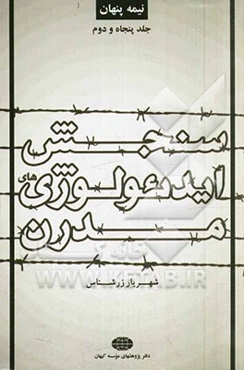 نیمه پنهان
جلد پنجاه و دوم
سنجش
ایدئولوژی های
مدرن
شهریار زرشناس
خانه کتاب
WWW.KETAB.IR
دفتر پژوهشهای مؤسسه کیهان